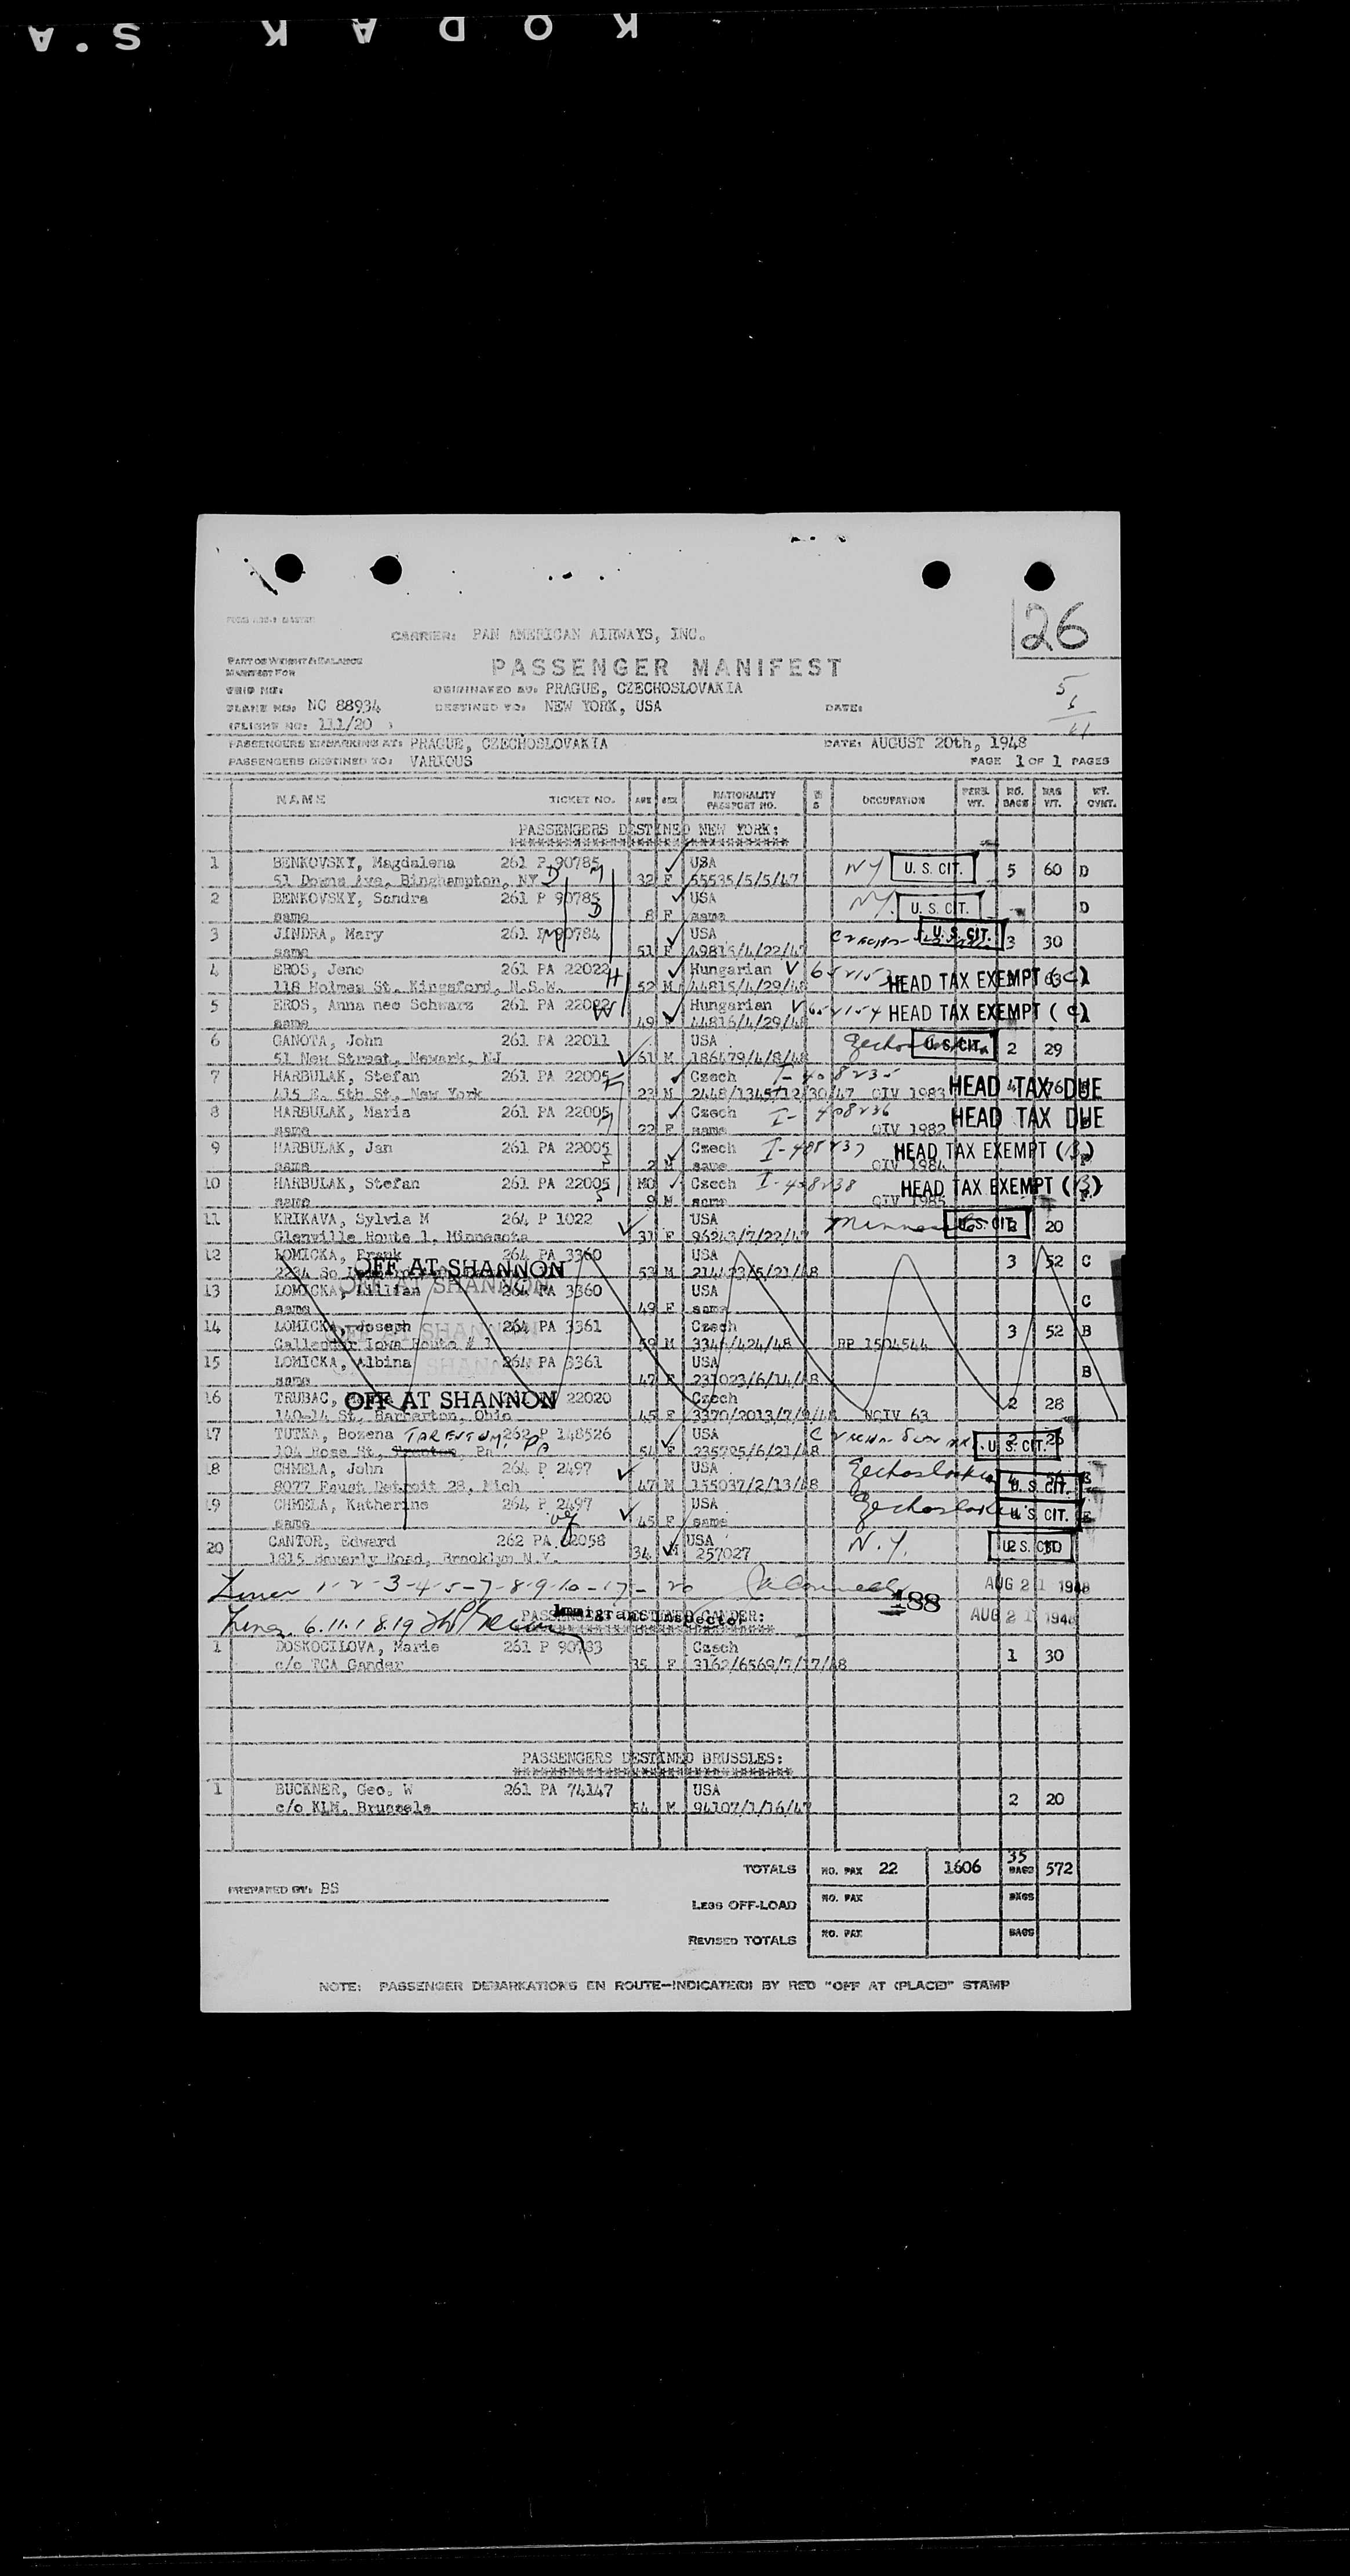 KODAK S.A
26
CARRIER: PAN AMERICAN AIRWAYS, INC.
PART OF WEIGHT & BALANCE
MANIFEST FOR
PASSENGER MANIFEST
TRIP NO:
ORIGINATED AT: PRAGUE, CZECHOSLOVAKIA
PLANE NO: NC 88934
DESTINED TO: NEW YORK, USA
DATE:
(FLIGHT NO: 111/20 )
PASSENGERS EMBARKING AT: PRAGUE, CZECHOSLOVAKIA DATE: AUGUST 20th, 1948
PASSENGERS DESTINED TO: VARIOUS PAGE 1 OF 1 PAGES
NAME TICKET NO. AGE SEX NATIONALITY PASSPORT NO. OCCUPATION PERS. WT. NO. BAGS BAG WT. WT. CYMT.
PASSENGERS DESTINED NEW YORK:
1 BENKOVSKY, Magdalena 261 P 90785 USA NY U. S. CIT. 5 60 D
51 Downs Ave, Binghampton, NY 32 F 55535/5/5/47
2 BENKOVSKY, Sandra 261 P 90785 USA NY. U. S. CIT. D
same 8 F same
3 JINDRA, Mary 261 P 90784 USA U. S. CIT. 3 30
same 51 F 49815/4/22/47
4 EROS, Jeno 261 PA 22022 H Hungarian V HEAD TAX EXEMPT (C)
118 Holman St. Kingsford, N.S.W. 52 M 44815/4/29/48
5 EROS, Anna nee Schwarz 261 PA 22022 W Hungarian V HEAD TAX EXEMPT (C)
same 49 F 44816/4/29/48
6 GANOTA, John 261 PA 22011 USA U. S. CIT. 2 29
51 New Street, Newark, NJ 61 M 186479/4/8/48
7 HARBULAK, Stefan 261 PA 22005 Czech I-408235 HEAD TAX DUE
415 E. 5th St, New York 23 M 2448/1345/12/30/47 QIV 1983
8 HARBULAK, Maria 261 PA 22005 Czech I-408236 HEAD TAX DUE
same 22 F same QIV 1982
9 HARBULAK, Jan 261 PA 22005 Czech I-408237 HEAD TAX EXEMPT (B)
same 2 M same QIV 1984
10 HARBULAK, Stefan 261 PA 22005 MO Czech I-408238 HEAD TAX EXEMPT (B)
same 9 M same QIV 1985
11 KRIKAVA, Sylvia M 264 P 1022 USA Minnesota U. S. CIT. 2 20
Glenville Route 1, Minnesota 31 F 96243/7/22/47
12 LOMICKA, Frank 264 PA 3360 USA 3 52 C
OFF AT SHANNON 53 M
13 LOMICKA, Lillian 264 PA 3360 USA C
same 49 F same
14 LOMICKA, Joseph 264 PA 3361 Czech 3 52 B
Callender Iowa Route # 1 59 M 3346/424/48 RP 1504544
15 LOMICKA, Albina 264 PA 3361 USA B
same 47 F 237023/6/14/48
16 TRUBAC, OFF AT SHANNON 22020 Czech 2 28
140-14 St, Barberton, Ohio 45 F 3370/2013/7/9/48 NQIV 63
17 TUTKA, Bozena TARENTUM, PA 262 P 148526 USA U. S. CIT.
104 Ross St, Pa 54 F 235795/6/21/48
18 CHMELA, John 264 P 2497 USA U. S. CIT.
8077 Faust Detroit 28, Mich 47 M 155037/2/13/48
19 CHMELA, Katherine 264 P 2497 USA U. S. CIT. E
same 45 F same
20 CANTOR, Edward 262 PA 62058 USA N.Y. U. S. CIT.
1815 Beverly Road, Brooklyn N.Y. 34 M 257027
1-2-3-4-5-7-8-9-10-17-20 AUG 21 1948
188
6.11.18.19 Immigrant Inspector AUG 21 1948
PASSENGERS DESTINED GANDER:
1 DOSKOCILOVA, Marie 261 P 90733 Czech 1 30
c/o TCA Gander 35 F 3162/6569/7/17/48
PASSENGERS DESTINED BRUSSLES:
1 BUCKNER, Geo. W 261 PA 74147 USA 2 20
c/o KLM, Brussels 54 M 94107/1/16/47
TOTALS NO. PAX 22 1606 35 BAGS 572
PREPARED BY: BS
LESS OFF-LOAD NO. PAX BAGS
REVISED TOTALS NO. PAX BAGS
NOTE: PASSENGER DEBARKATIONS EN ROUTE—INDICATE(D) BY RED "OFF AT (PLACE)" STAMP